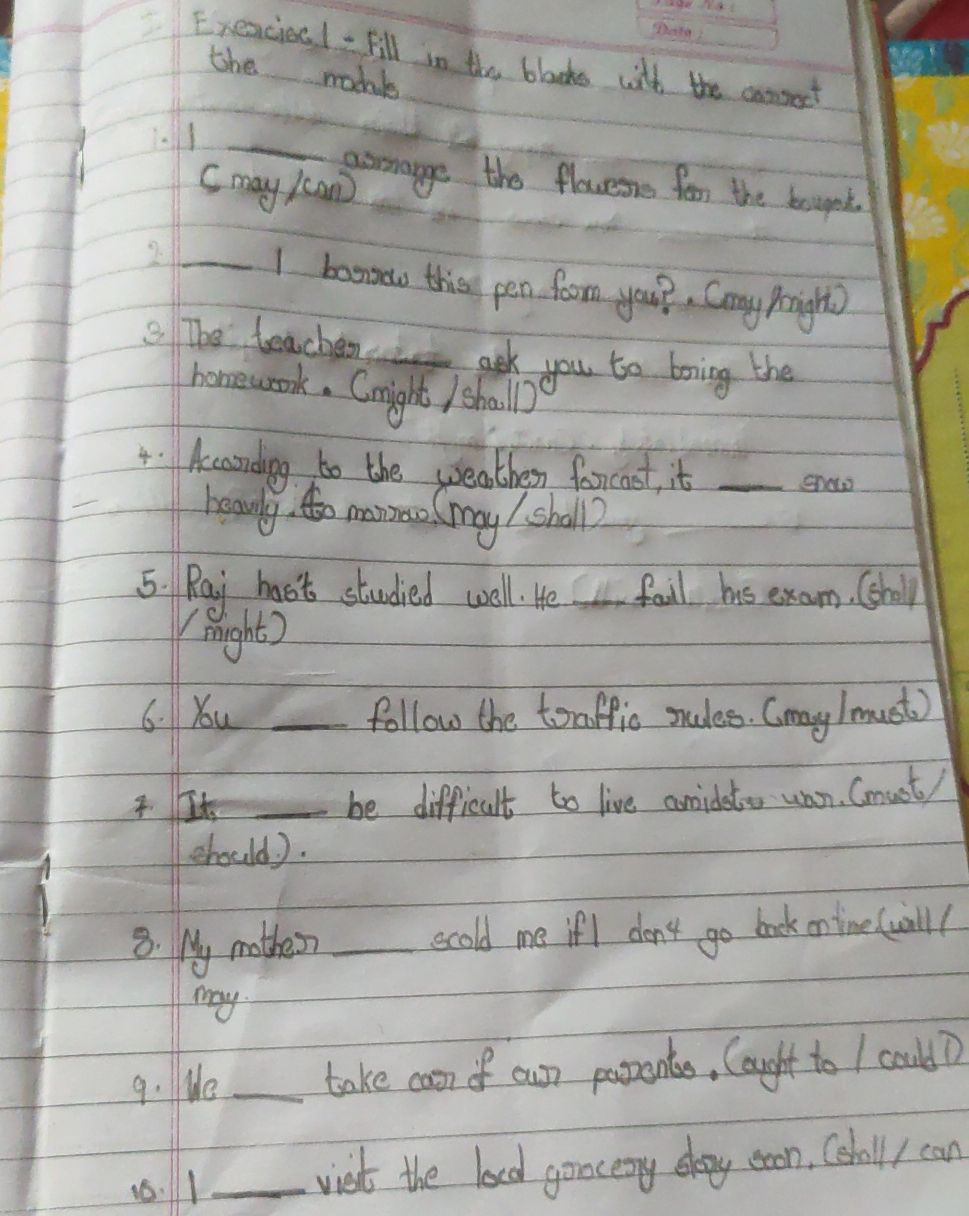 Page No:
Date:
Exercise 1 - Fill in the blacks with the correct
the modals
1. I ____ arrange the flowers for the
(may/can)
2. ____ I borrow this pen form you? . (may/might)
3 The teacher ____ ask you to bring the
homework. (might / shall)
4. According to the weather forcast, it ____ snow
heavily. to morrow. (may / shall)
5. Raj has't studied well. He ____ fail his exam. (shall
/ might)
6. You ____ follow the traffic rules. (may / must)
7. It ____ be difficult to live amidst war. (must /
should).
8. My mother ____ scold me if I don't go back on time (will /
may.
9. We ____ take car of our parrents. (ought to / could)
10. I ____ visit the local grocery soon. (shall / can